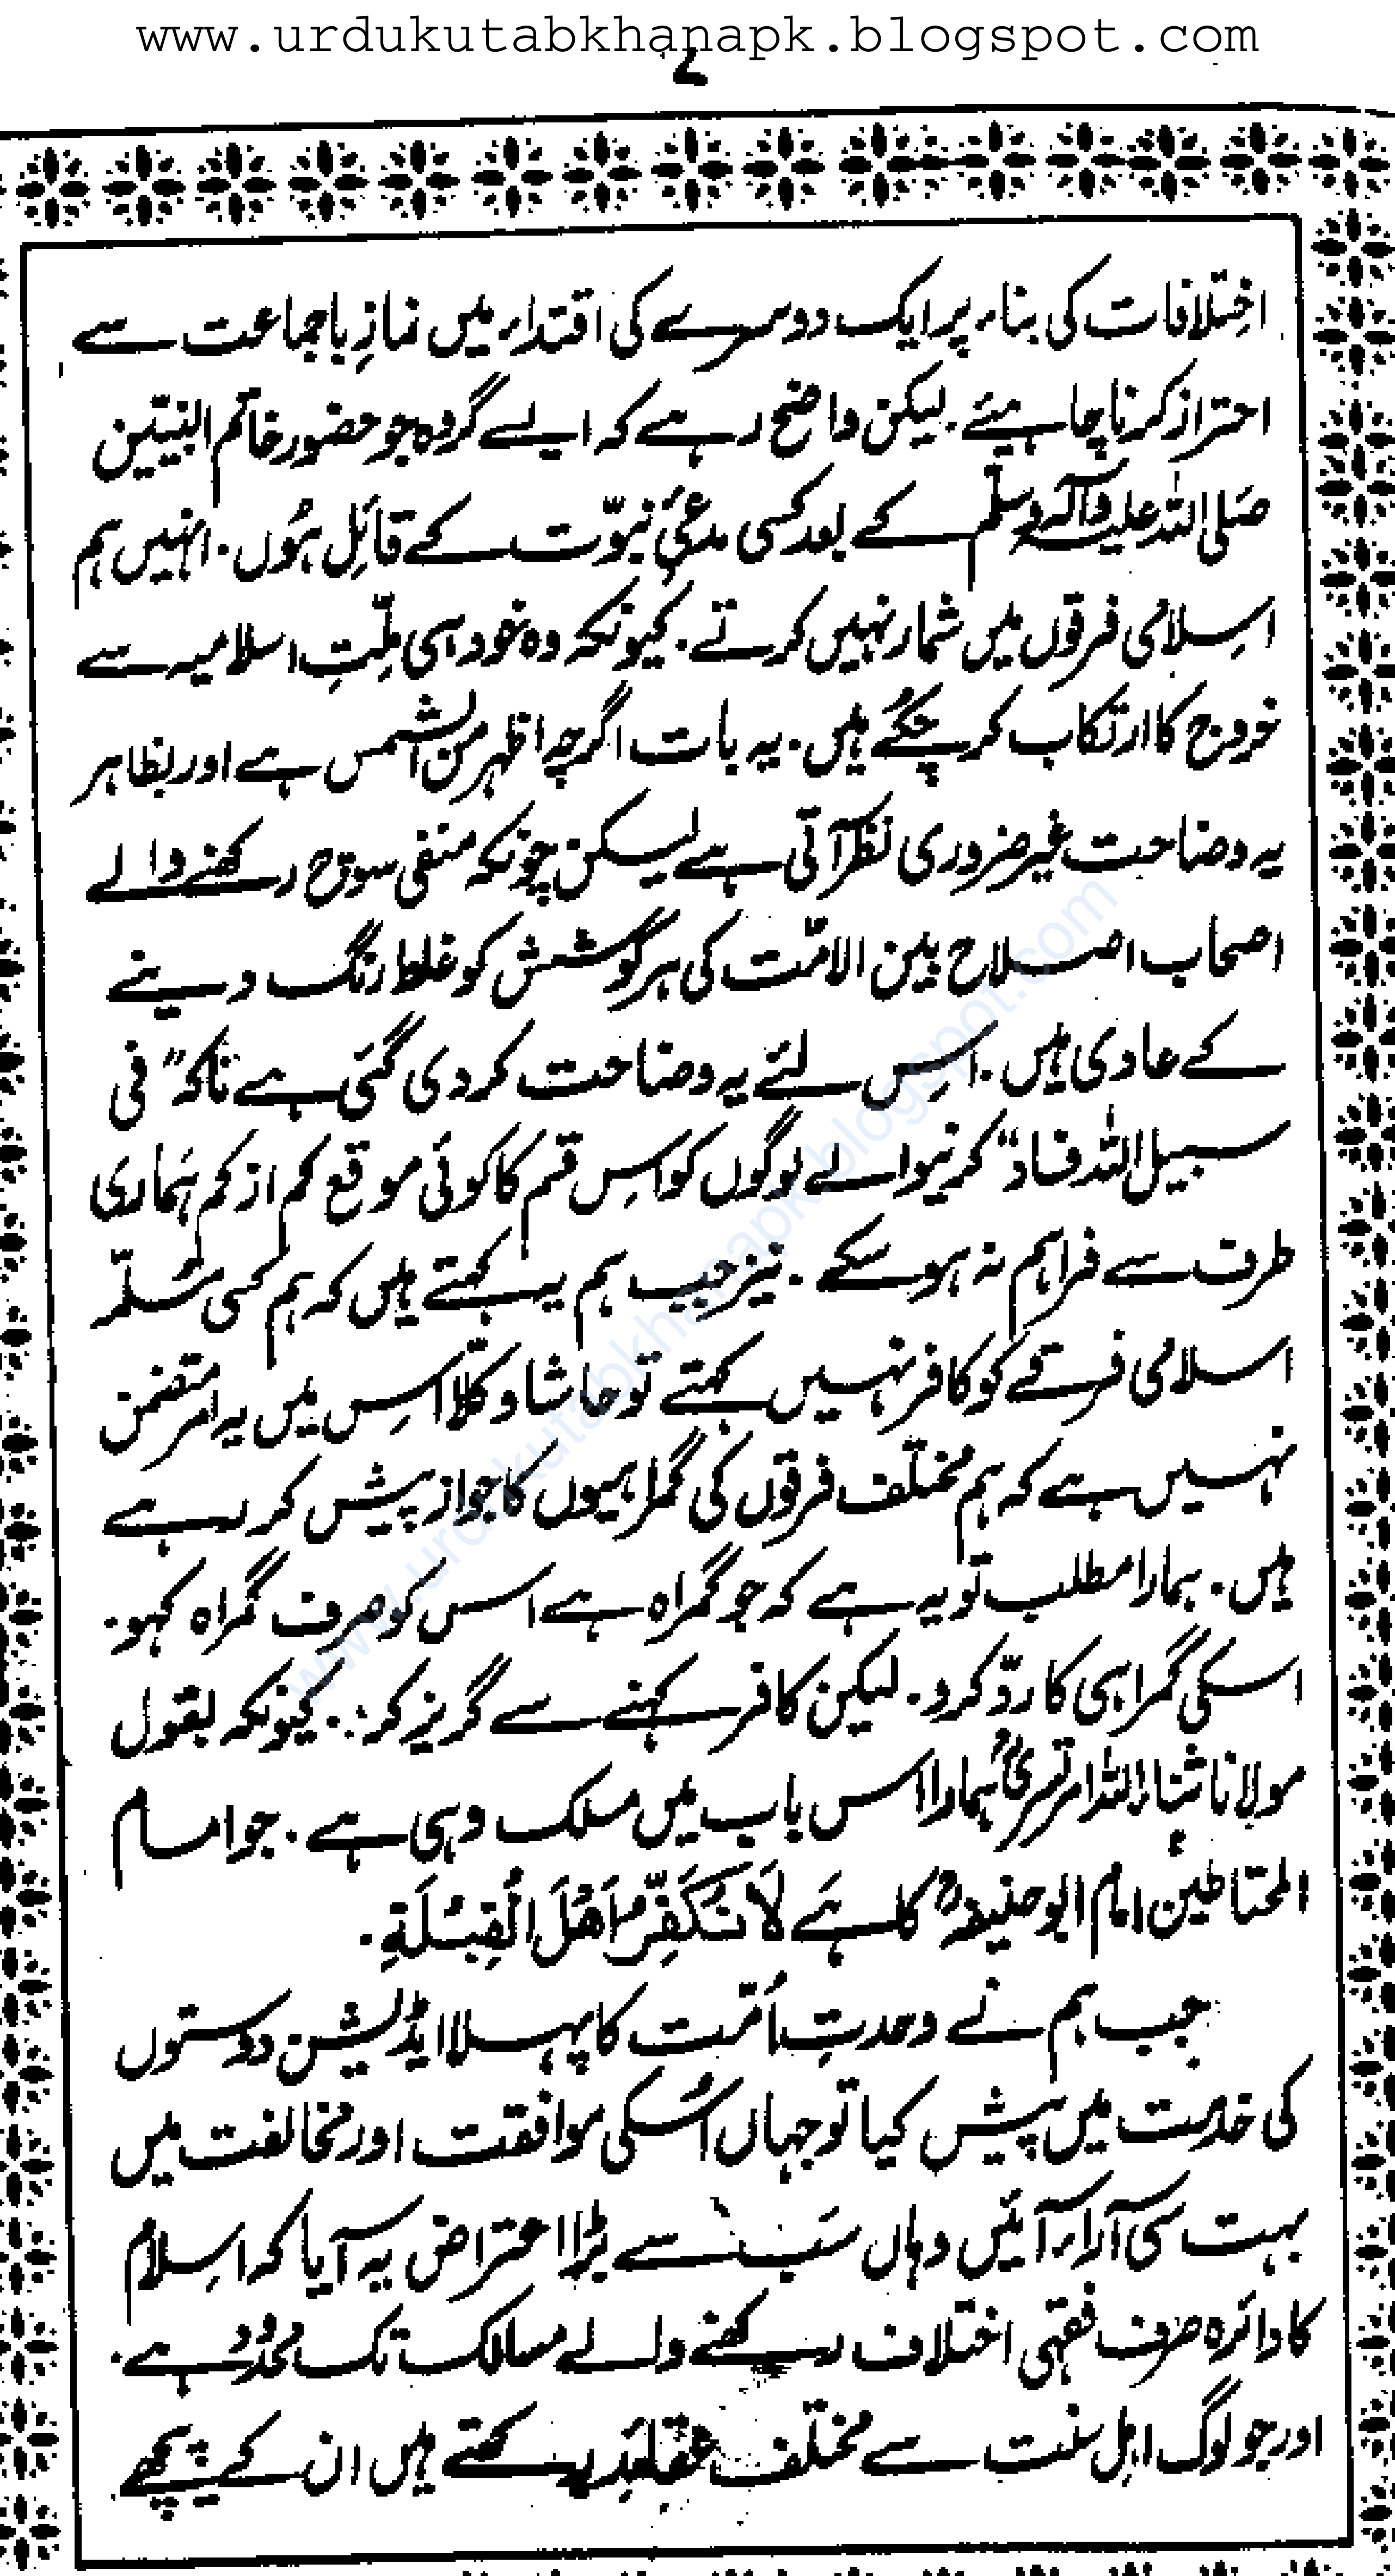 www.urdukutabkhanapk.blogspot.com
۷
اختلافات کی بناء پر ایک دوسرے کی اقتداء میں نمازِ باجماعت سے
احتراز کرنا چاہیئے۔ لیکن واضح رہے کہ ایسے گروہ جو حضور خاتم النبیّین
صلی اللہ علیہ وآلہ وسلّم کے بعد کسی مدعیٔ نبوّت کے قائل ہوں۔ انہیں ہم
اسلامی فرقوں میں شمار نہیں کرتے۔ کیونکہ وہ خود اسی ملّتِ اسلامیہ سے
خروج کا ارتکاب کر چکے ہیں۔ یہ بات اگرچہ اظہر من الشمس ہے اور بظاہر
یہ وضاحت غیر ضروری نظر آتی ہے لیکن چونکہ منفی سوچ رکھنے والے
اصحاب اصلاح بین الامّت کی ہر کوشش کو غلط رنگ دینے
کے عادی ہیں۔ اس لئے یہ وضاحت کر دی گئی ہے تاکہ "فی
سبیل اللہ فساد" کرنیوالے لوگوں کو اس قسم کا کوئی موقع کم از کم ہماری
طرف سے فراہم نہ ہو سکے۔ نیز جب ہم یہ کہتے ہیں کہ ہم کسی مُسلّمہ
اسلامی فرقے کو کافر نہیں کہتے تو حاشا و کلّا اس میں یہ امر متضمن
نہیں ہے کہ ہم مختلف فرقوں کی گمراہیوں کا جواز پیش کر رہے
ہیں۔ ہمارا مطلب تو یہ ہے کہ جو گمراہ ہے اس کو صرف گمراہ کہو۔
اسکی گمراہی کا ردّ کرو۔ لیکن کافر کہنے سے گریز کرو۔ کیونکہ بقول
مولانا ثناء اللہ امرتسریؒ ہمارا اس باب میں مسلک وہی ہے۔ جو امام
المحتاطین امام ابو حنیفہؒ کا ہے لَا نُکَفِّرُ اَھْلَ الْقِبْلَةِ۔
جب ہم نے وحدتِ اُمّت کا پہلا ایڈیشن دوستوں
کی خدمت میں پیش کیا تو جہاں اُسکی موافقت اور مخالفت میں
بہت سی آراء آئیں وہاں سب سے بڑا اعتراض یہ آیا کہ اسلام
کا دائرہ صرف فقہی اختلاف رکھنے والے مسالک تک محدود ہے۔
اور جو لوگ اہل سنت سے مختلف عقائد رکھتے ہیں ان کے پیچھے
www.urdukutabkhanapk.blogspot.com